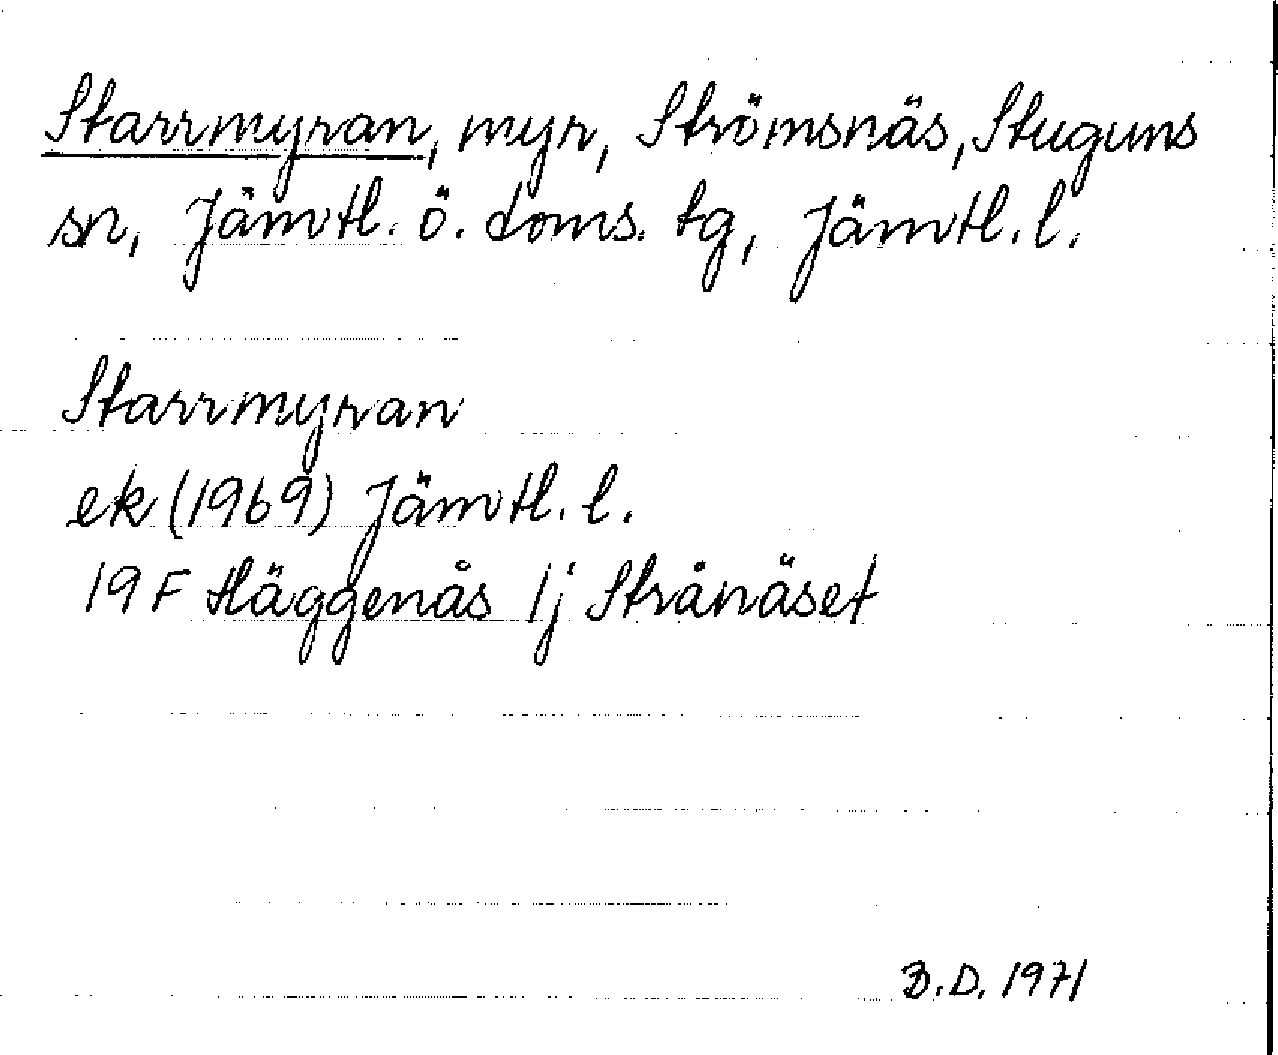 Starrmyran, myr, Strömsnäs, Stuguns
sn, Jämtl. ö. doms. tg, Jämtl. l.
Starrmyran
ek (1969) Jämtl. l.
19 F Häggenås 1j Strånäset
B.D. 1971